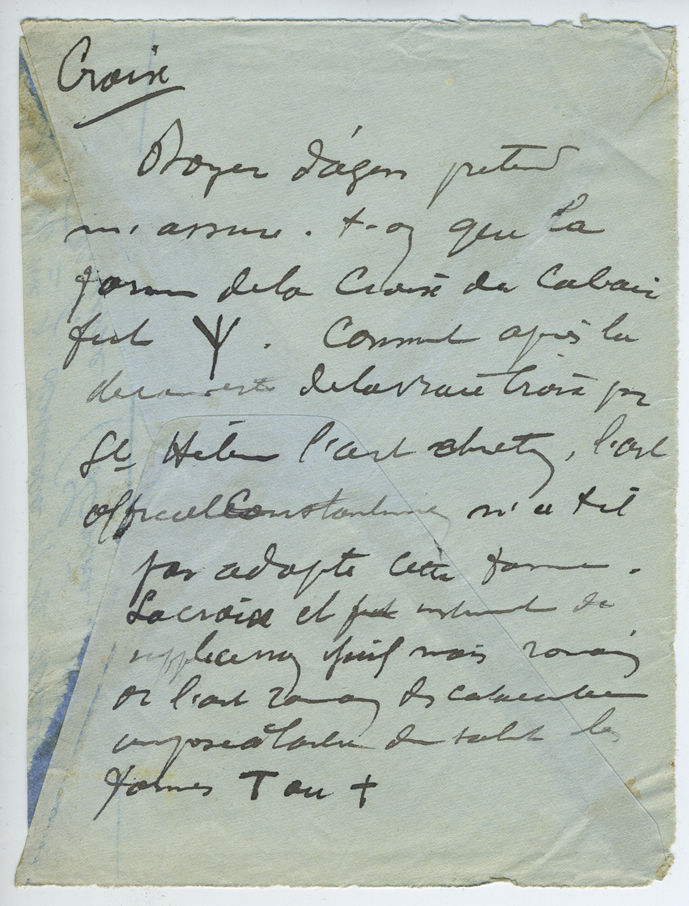 Croix
Boyer d'agen pretend
m'assure-t-on que la
forme de la Croix du Calvaire
fut Y. Comment après la
decouverte de la vraie Croix par
Ste Hélène l'art chretien, l'art
officiel Constantinien n'a t il
pas adopté cette forme.
La croix et fut instrument de
supplice non juif mais romain
or l'art romain des catacombes
impose à l'arbre du salut les
formes T ou +